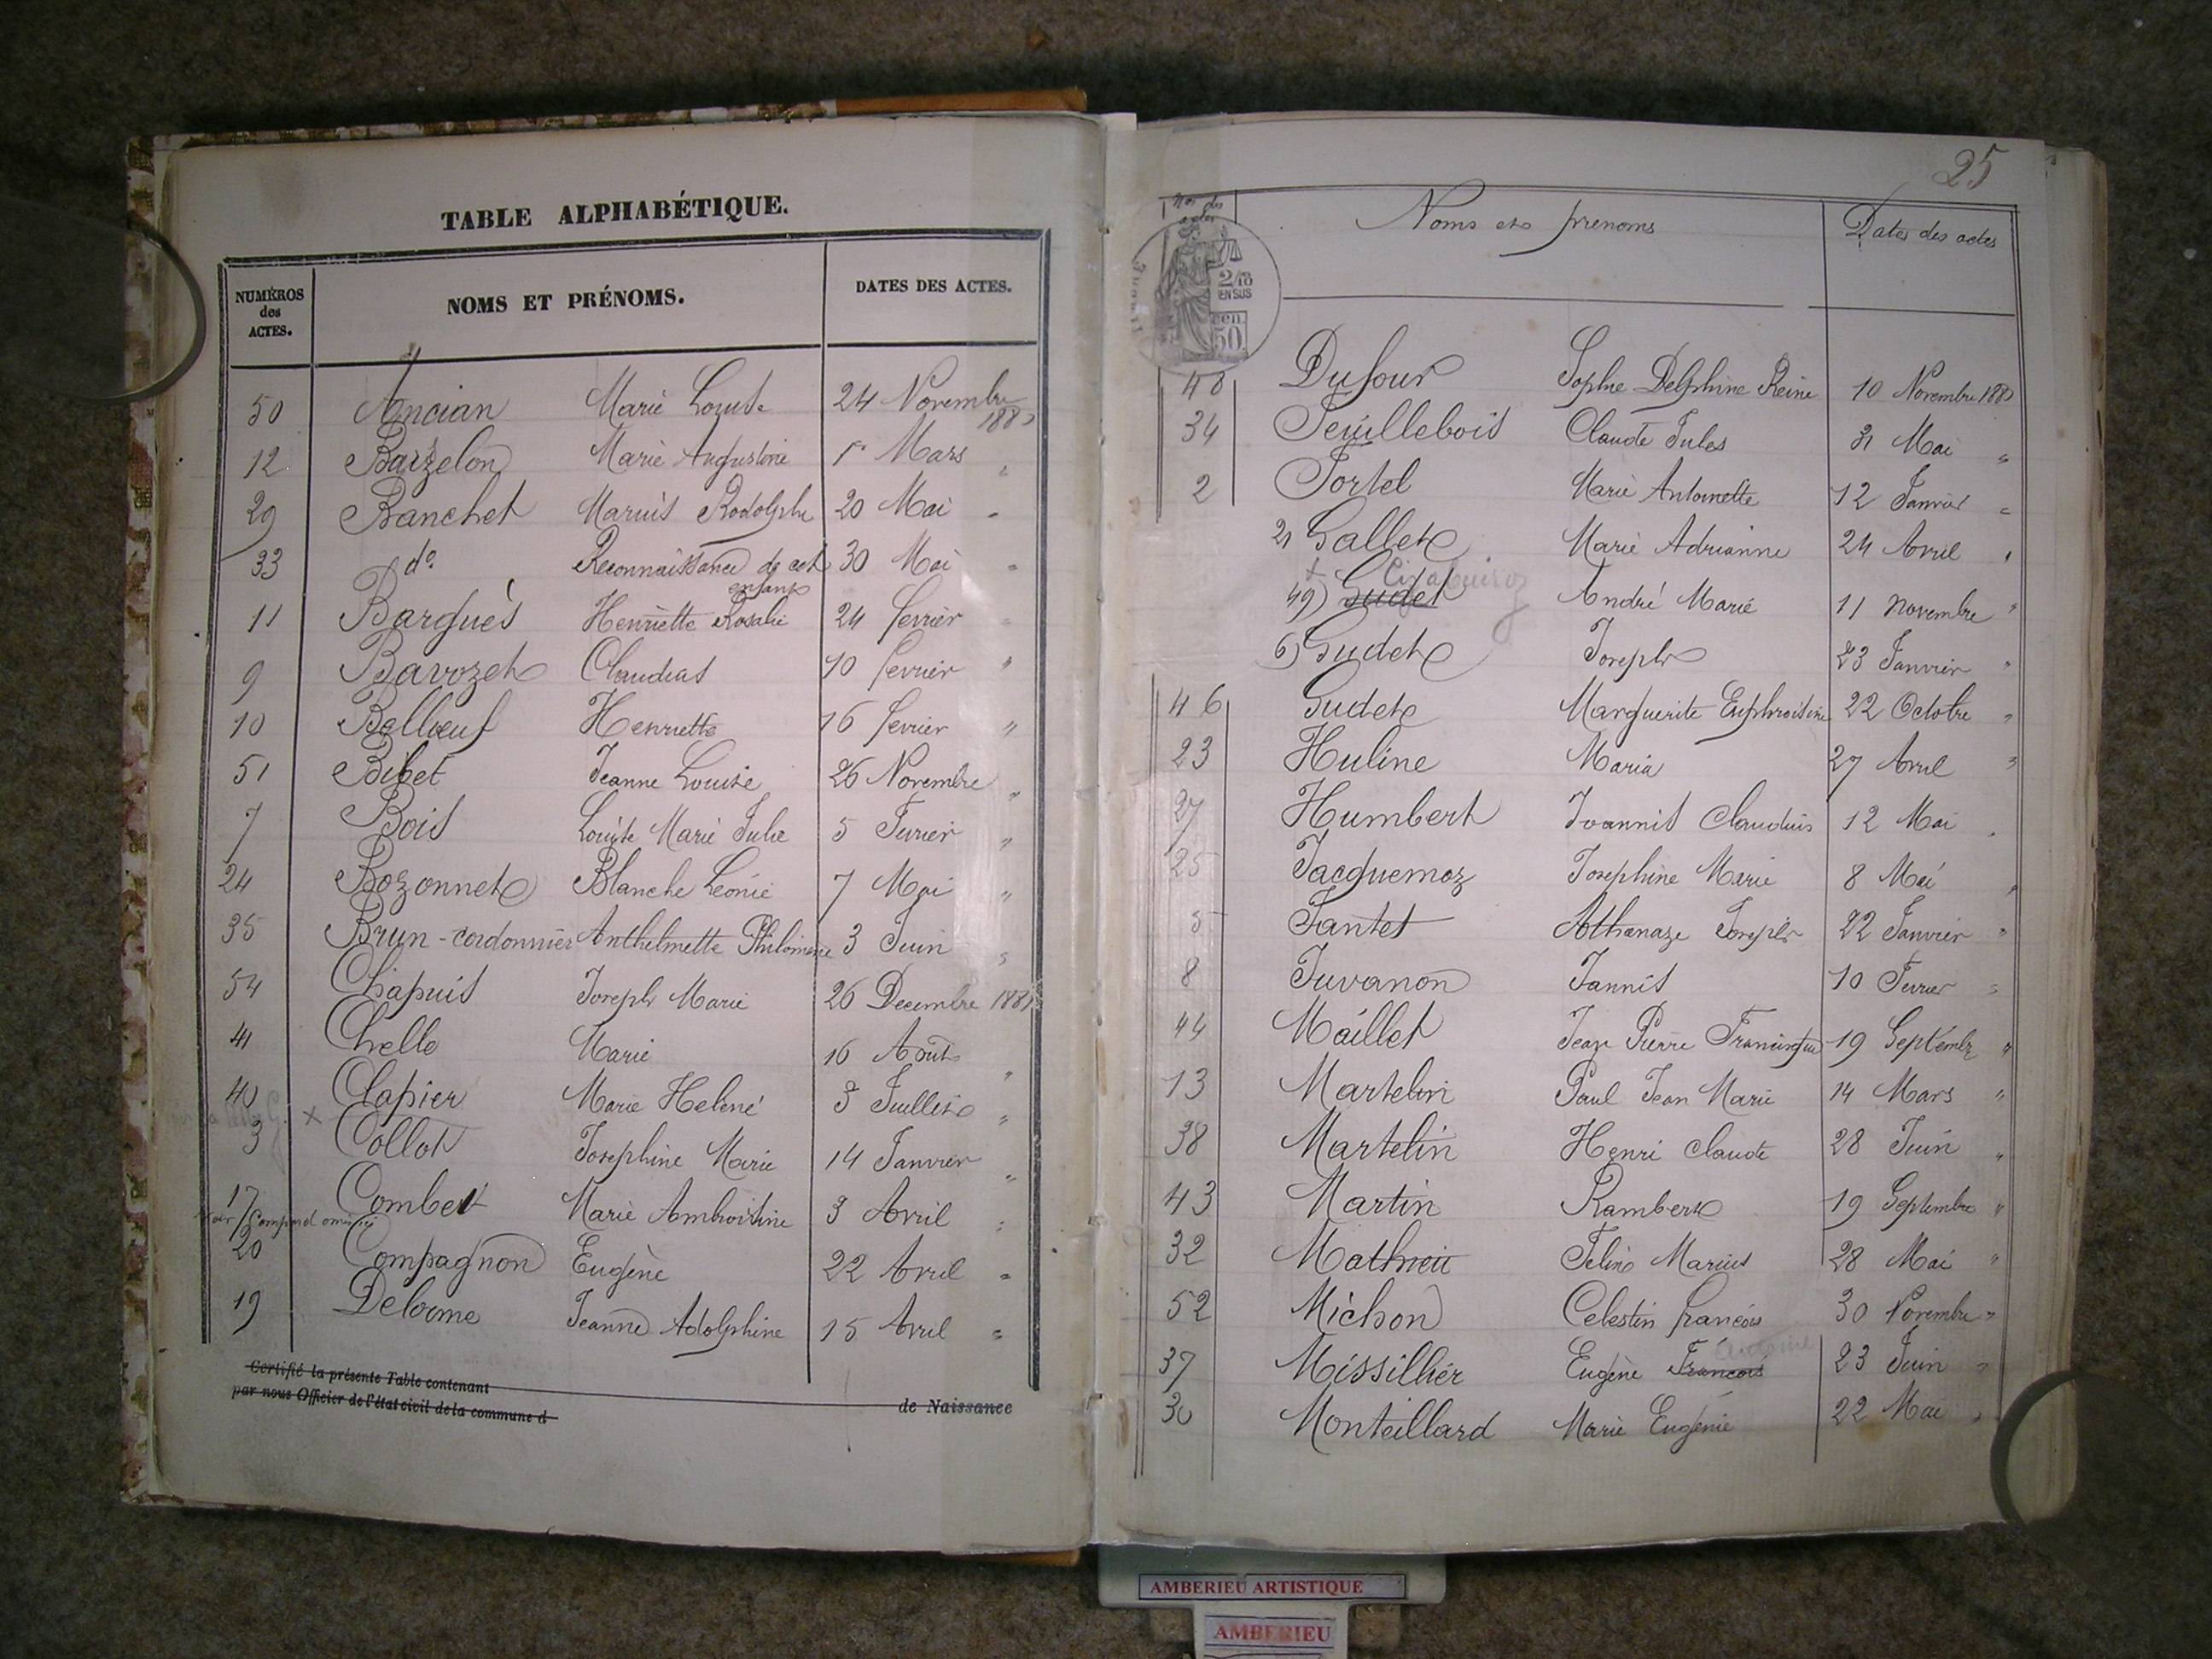 TABLE ALPHABÉTIQUE.
NUMÉROS des ACTES. NOMS ET PRÉNOMS. DATES DES ACTES.
50 Ancian Marie Louise 24 Novembre
12 Barzelon Marie Augustine 1er Mars "
29 Banchet Marius Rodolphe 20 Mai "
33 do Reconnaissance de cet enfant 30 Mai "
11 Barguès Henriette Rosalie 24 fevrier "
9 Bavozet Claudius 10 fevrier "
10 Bellœuf Henriette 16 fevrier "
51 Bibet Jeanne Louise 26 Novembre "
7 Bois Louise Marie Julie 5 Fevrier "
24 Bozonnet Blanche Léonie 7 Mai "
35 Brun-cordonnier Anthelmette Philomène 3 Juin "
54 Chapuis Joseph Marie 26 Decembre
41 Chelle Marie 16 Août "
40 Clapier Marie Helené 3 Juillet "
3 Collot Josephine Marie 14 Janvier "
17 Combet Marie Ambroisine 3 Avril "
20 Compagnon Eugène 22 Avril "
19 Delorme Jeanne Adolphine 15 Avril "
Certifié la présente Table contenant
par nous Officier de l'état civil de la commune d de Naissance
25
Nos des actes Noms et prenoms Dates des actes
2/10 EN SUS
50 cen
48 Dufour Sophie Delphine Reine 10 Novembre
34 Feuillebois Claude Jules 31 Mai "
2 Fortel Marie Antoinette 12 Janvier "
21 Gallet Marie Adrianne 24 Avril "
49) Gudet André Marie 11 novembre "
6) Gudet Joseph 23 Janvier "
46 Gudet Marguerite Euphroisine 22 Octobre "
23 Huline Maria 27 Avril "
27 Humbert Joannis Claudius 12 Mai "
25 Jacquemoz Josephine Marie 8 Mai "
5 Jantet Athanaze Joseph 22 Janvier "
8 Juvanon Jannis 10 Fevrier "
44 Maillet Jean Pierre Francisque 19 Septembre "
13 Martelin Paul Jean Marie 14 Mars "
38 Martelin Henri Claude 28 Juin "
43 Martin Rambert 19 Septembre "
32 Mathieu Felino Marius 28 Mai "
52 Michon Celestin françois 30 Novembre "
37 Missillier Eugène François Antoine 23 Juin "
30 Monteillard Marie Eugénie 22 Mai "
AMBERIEU ARTISTIQUE
AMBERIEU